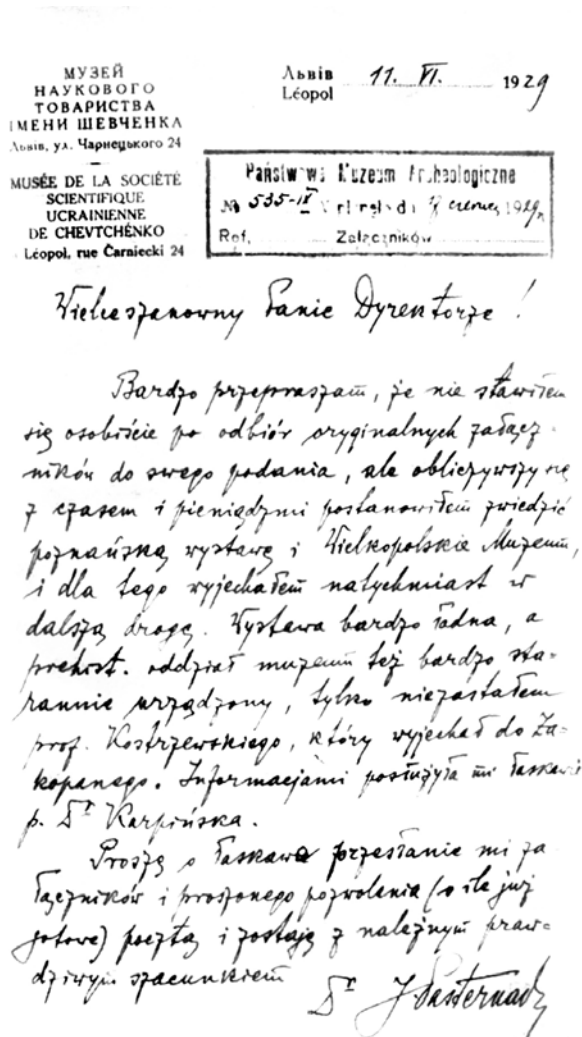 МУЗЕЙ
НАУКОВОГО
ТОВАРИСТВА
ІМЕНИ ШЕВЧЕНКА
Львів, ул. Чарнецького 24
MUSÉE DE LA SOCIÉTÉ
SCIENTIFIQUE
UCRAINIENNE
DE CHEVTCHÉNKO
Léopol, rue Čarniecki 24
Львів
Léopol
11. VI. 1929
Państwowe Muzeum Archeologiczne
№ 535-IX dn. czerwca 1929
Ref. Załączników
Wielceszanowny Panie Dyrektorze!
Bardzo przepraszam, że nie stawiłem
się osobiście po odbiór oryginalnych załącz-
ników do swego podania, ale obliczywszy się
z czasem i pieniądzmi postanowiłem zwiedzić
poznańską wystawę i Wielkopolskie Muzeum,
i dla tego wyjechałem natychmiast w
dalszą drogę. Wystawa bardzo ładna, a
prehist. oddział muzeum też bardzo sta-
rannie urządzony, tylko niezastałem
prof. Kostrzewskiego, który wyjechał do Za-
kopanego. Informacjami posłużyła mi łaskawie
p. Dr Karpińska.
Proszę o łaskawe przesłanie mi za-
łączników i proszonego pozwolenia (o ile już
gotowe) pocztą i zostaję z należnym praw-
dziwym szacunkiem
Dr J. Pasternak